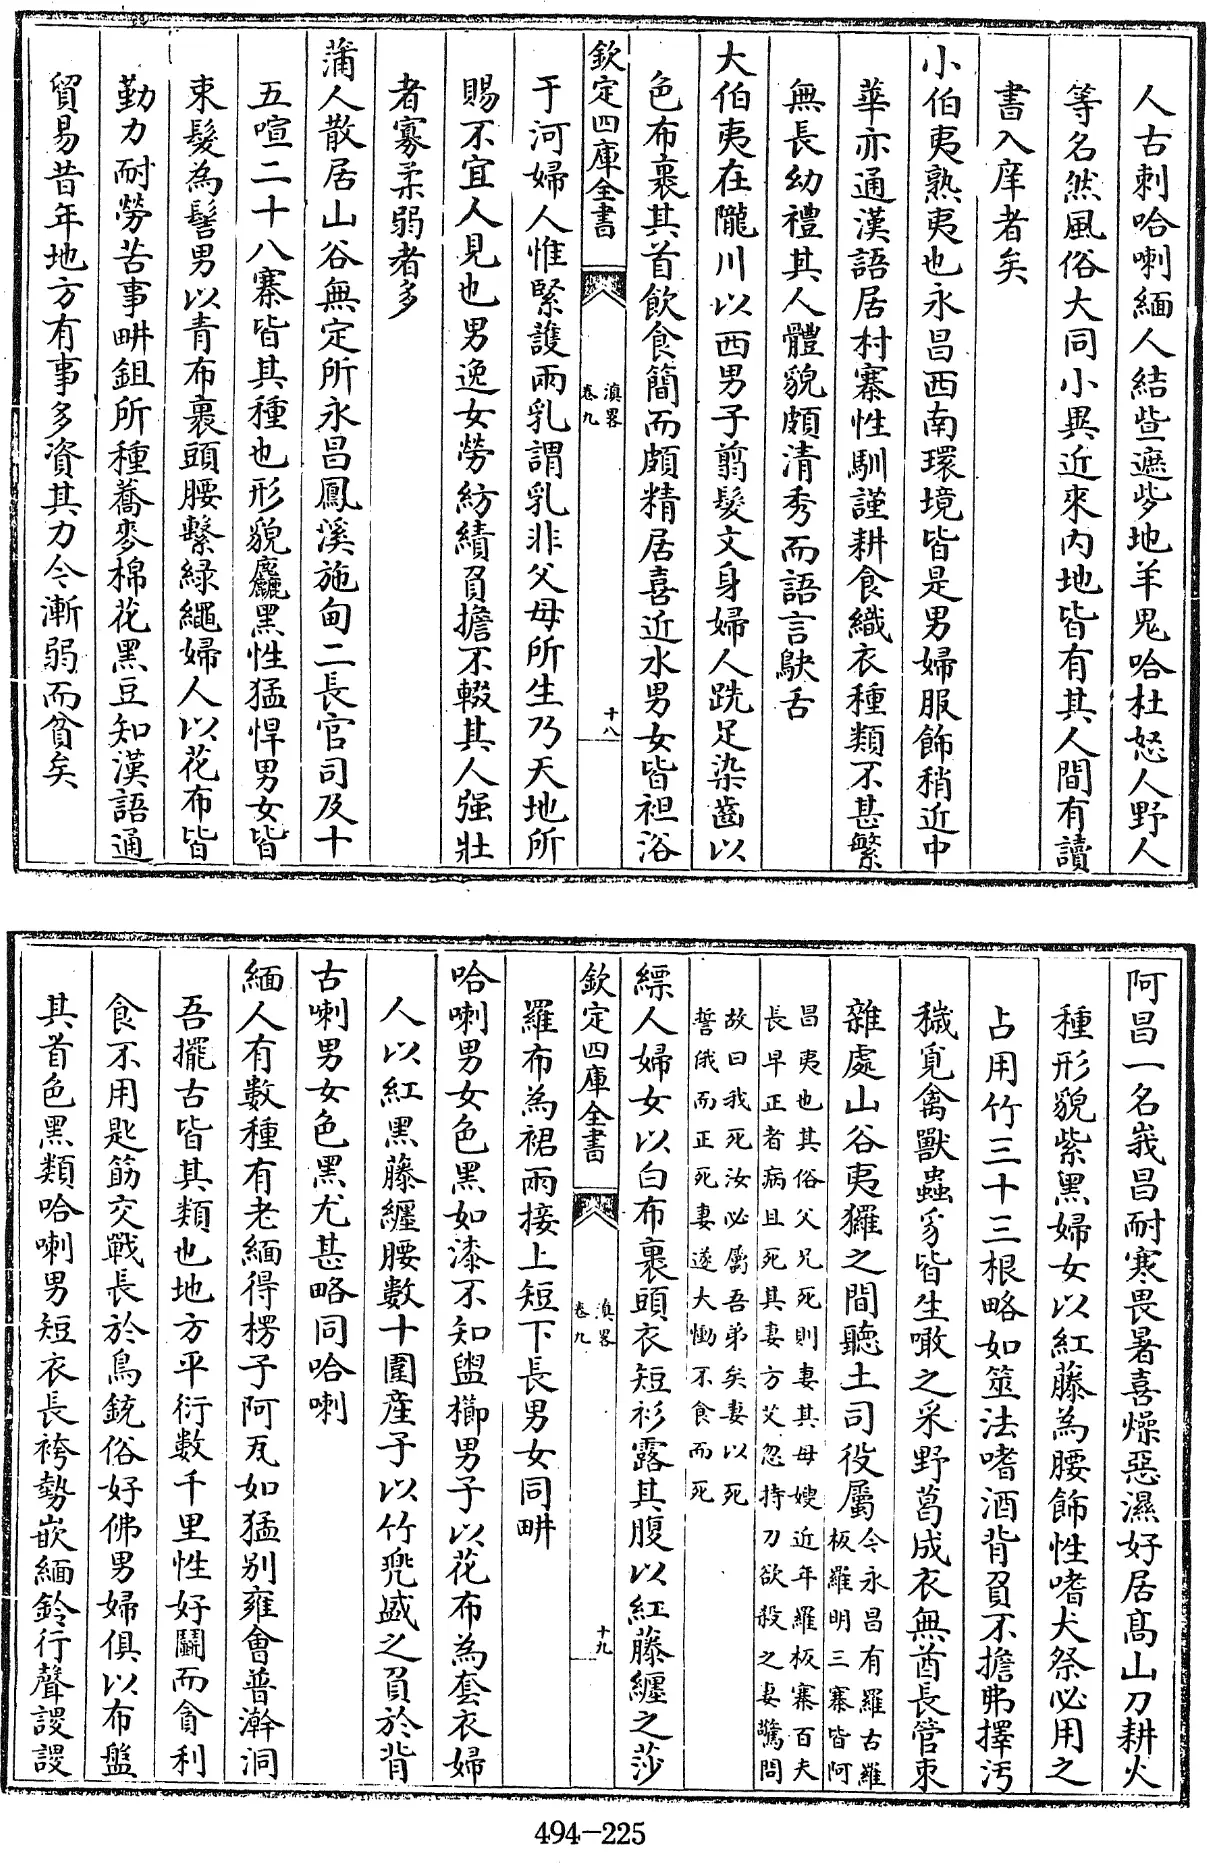 人古剌哈喇緬人結些遮些地羊鬼哈杜怒人野人
等名然風俗大同小異近來内地皆有其人間有讀
書入庠者矣
小伯夷熟夷也永昌西南環境皆是男婦服飾稍近中
華亦通漢語居村寨性馴謹耕食織衣種類不甚繁
無長幼禮其人體貌頗清秀而語言鴃舌
大伯夷在隴川以西男子翦髮文身婦人跣足染齒以
色布裹其首飲食簡而頗精居喜近水男女皆袒浴
欽定四庫全書
滇畧
卷九
十八
于河婦人惟緊護兩乳謂乳非父母所生乃天地所
賜不宜人見也男逸女勞紡績負擔不輟其人强壯
者寡柔弱者多
蒲人散居山谷無定所永昌鳳溪施甸二長官司及十
五喧二十八寨皆其種也形貌麤黑性猛悍男女皆
束髮為髻男以青布裹頭腰繫緑繩婦人以花布皆
勤力耐勞苦事畊鉏所種蕎麥棉花黑豆知漢語通
貿易昔年地方有事多資其力今漸弱而貧矣
阿昌一名峩昌耐寒畏暑喜燥惡濕好居髙山刀耕火
種形貌紫黑婦女以紅藤為腰飾性嗜犬祭必用之
占用竹三十三根略如筮法嗜酒背負不擔弗擇汚
穢覓禽獸蟲豸皆生噉之采野葛成衣無酋長管束
雜處山谷夷玀之間聽土司役屬
今永昌有羅古羅
板羅明三寨皆阿
昌夷也其俗父兄死則妻其母嫂近年羅板寨百夫
長早正者病且死其妻方艾忽持刀欲殺之妻驚問
故曰我死汝必屬吾弟矣妻以死
誓俄而正死妻遂大慟不食而死
縹人婦女以白布裹頭衣短衫露其腹以紅藤纏之莎
欽定四庫全書
滇畧
卷九
十九
羅布為裙兩接上短下長男女同畊
哈喇男女色黑如漆不知盥櫛男子以花布為套衣婦
人以紅黑藤纏腰數十圍產子以竹兠盛之負於背
古喇男女色黑尤甚略同哈喇
緬人有數種有老緬得楞子阿瓦如猛別雍會普澣洞
吾擺古皆其類也地方平衍數千里性好鬭而貪利
食不用匙筯交戰長於鳥銃俗好佛男婦俱以布盤
其首色黑類哈喇男短衣長袴勢嵌緬鈴行聲謖謖
494-225